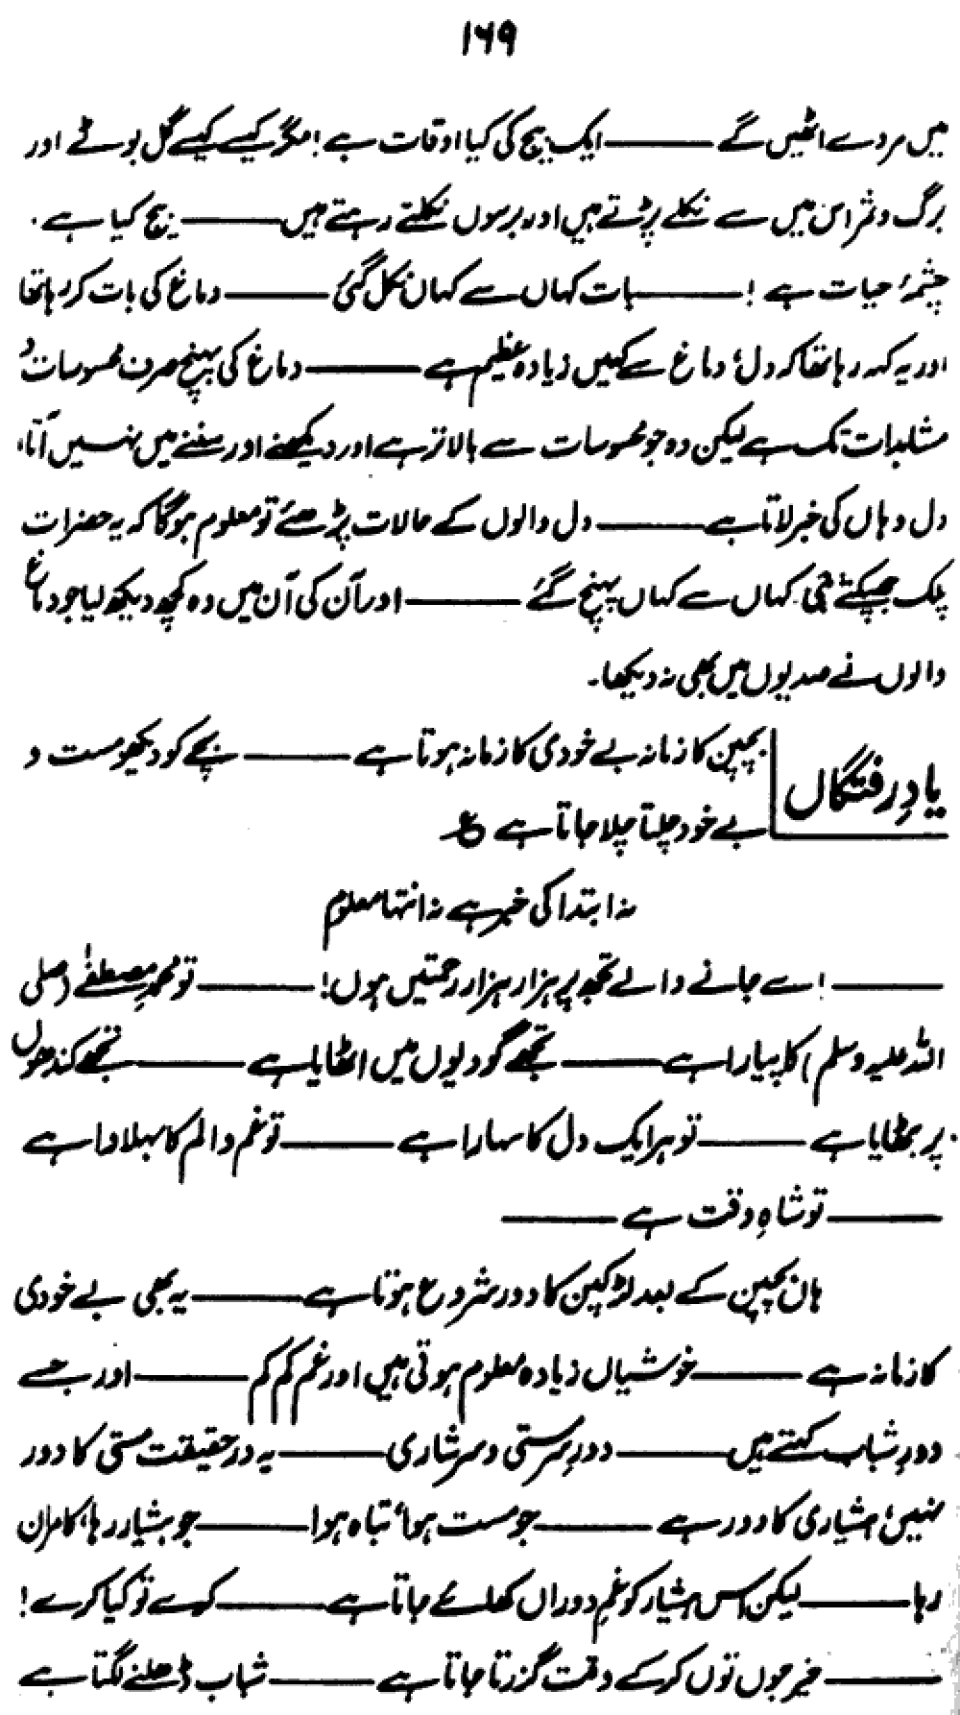 ۱۶۹
میں مردے اٹھیں گے ——— ایک بیج کی کیا اوقات ہے! مگر کیسے کیسے گل بوٹے اور
برگ و ثمر اس میں سے نکلے پڑتے ہیں اور برسوں نکلتے رہتے ہیں ——— بیج کیا ہے۔
چشمۂ حیات ہے! ——— بات کہاں سے کہاں نکل گئی ——— دماغ کی بات کر رہا تھا
اور یہ کہہ رہا تھا کہ دل، دماغ سے کہیں زیادہ عظیم ہے ——— دماغ کی پہنچ صرف محسوسات و
مشاہدات تک ہے لیکن وہ جو محسوسات سے بالاتر ہے اور دیکھنے اور سننے میں نہیں آتا،
دل وہاں کی خبر لاتا ہے ——— دل والوں کے حالات پڑھئے تو معلوم ہوگا کہ یہ حضرات
پلک جھپکتے ہی کہاں سے کہاں پہنچ گئے ——— اور آن کی آن میں وہ کچھ دیکھ لیا جو دماغ
والوں نے صدیوں میں بھی نہ دیکھا۔
یادِ رفتگاں
بچپن کا زمانہ بے خودی کا زمانہ ہوتا ہے ——— بچے کو دیکھو مست و
بے خود چلتا چلا جاتا ہے ؏
نہ ابتدا کی خبر ہے نہ انتہا معلوم
——— اے جانے والے تجھ پر ہزار ہزار رحمتیں ہوں! ——— تو محمد مصطفےٰ (صلی
اللہ علیہ وسلم) کا پیارا ہے ——— تجھے گودیوں میں اٹھایا ہے ——— تجھے کندھوں
پر بٹھایا ہے ——— تو ہر ایک دل کا سہارا ہے ——— تو غم و الم کا بہلاوا ہے
——— تو شاہِ وقت ہے ———
ہاں بچپن کے بعد لڑکپن کا دور شروع ہوتا ہے ——— یہ بھی بے خودی
کا زمانہ ہے ——— خوشیاں زیادہ معلوم ہوتی ہیں اور غم کم کم ——— اور جسے
دورِ شباب کہتے ہیں ——— دورِ سرمستی و سرشاری ——— یہ در حقیقت مستی کا دور
نہیں، ہشیاری کا دور ہے ——— جو مست ہوا، تباہ ہوا ——— جو ہشیار رہا، کامران
رہا ——— لیکن اس ہشیار کو غمِ دوراں کھائے جاتا ہے ——— کرے تو کیا کرے!
——— خیر جوں توں کر کے وقت گزرتا جاتا ہے ——— شباب ڈھلنے لگتا ہے